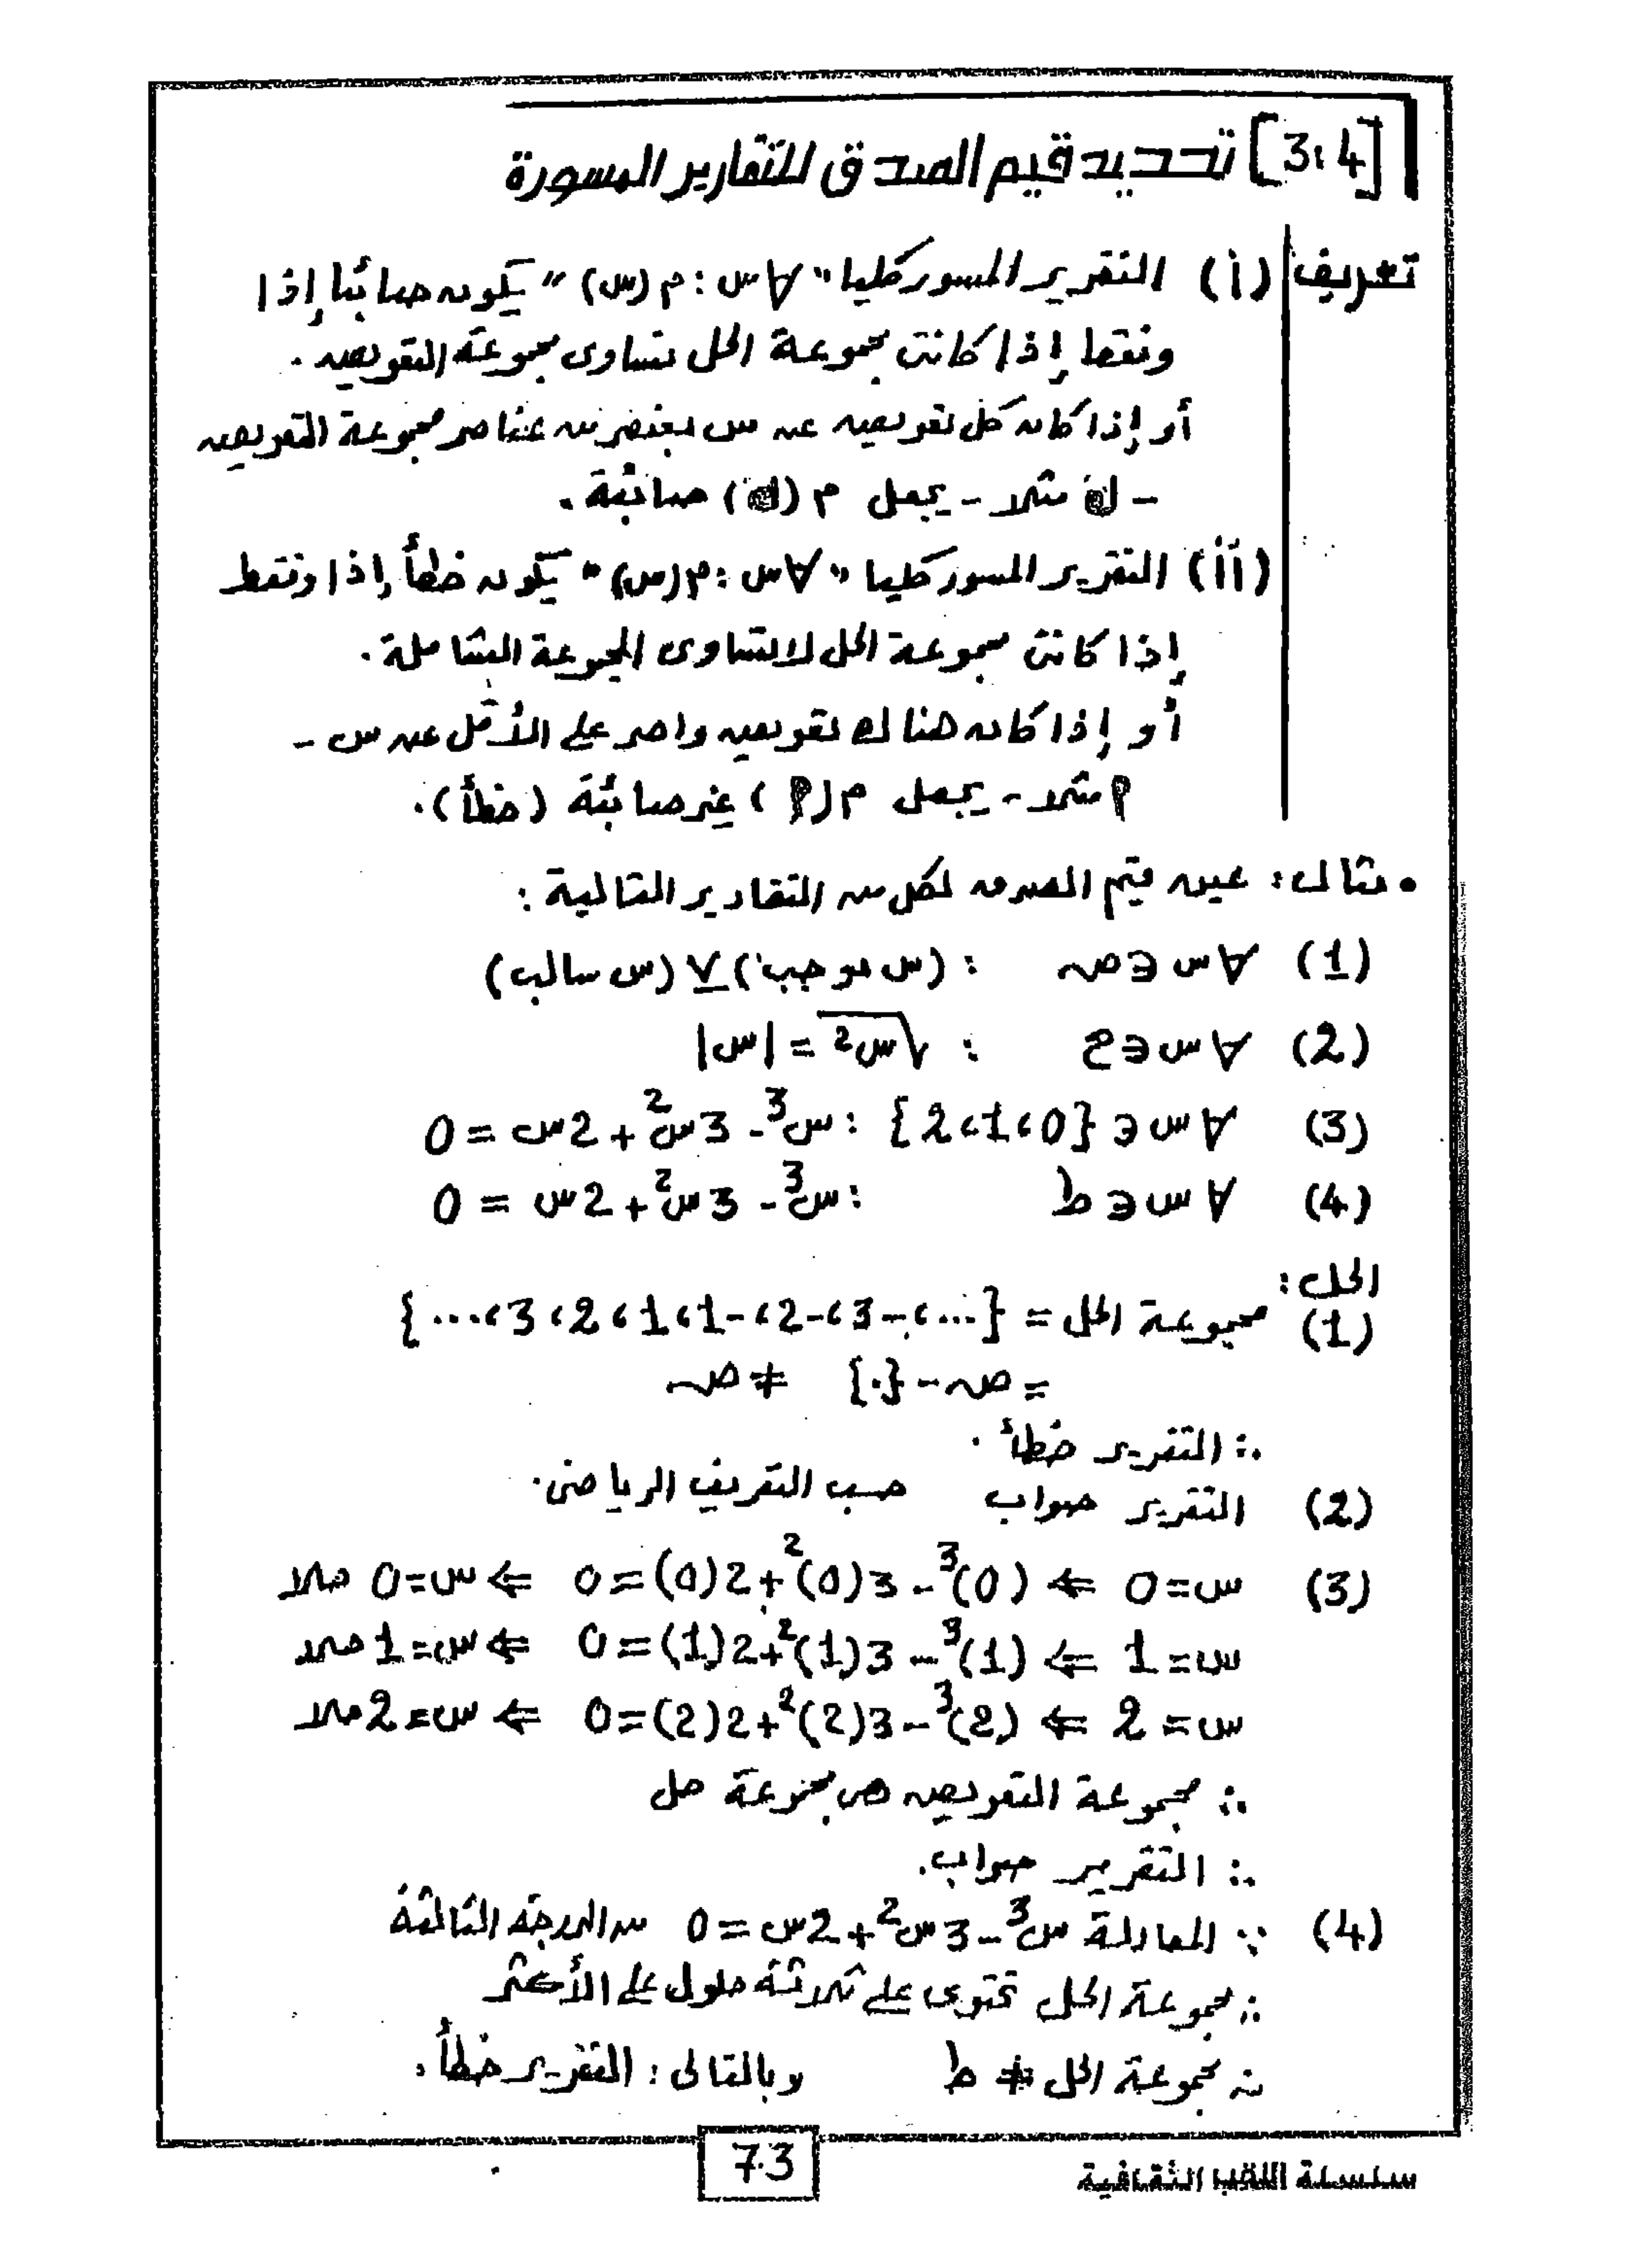 [3،4] تحديد قيم الصدق للتقارير المسورة
تعريف (i) التقرير المسور كليا " ∀ س : م (س) " يكون صائبا إذا
وفقط إذا كانت مجموعة الحل تساوى مجموعة التعويض .
أو إذا كان كل تعويض عن س بعنصر من عناصر مجموعة التعويض
- ك مثلا - يجعل م (ك) صائبة .
(ii) التقرير المسور كليا " ∀ س : م (س) " يكون خطأ إذا وفقط
إذا كانت مجموعة الحل لا تساوى المجموعة الشاملة .
أو إذا كان هناك تعويض واحد على الأقل عن س -
م مثلا - يجعل م (م) غير صائبة (خطأ) .
• مثال : عين قيم الصدق لكل من التقارير التالية :
(1) ∀ س ∈ صـ : (س موجب) ⊻ (س سالب)
(2) ∀ س ∈ ح : √س² = |س|
(3) ∀ س ∈ {0، 1، 2} : س³ - 3س² + 2س = 0
(4) ∀ س ∈ ط : س³ - 3س² + 2س = 0
الحل :
(1) مجموعة الحل = {...، -3، -2، -1، 1، 2، 3، ...}
= صـ - {٠} ≠ صـ
∴ التقرير خطأ .
(2) التقرير صواب حسب التعريف الرياضى .
(3) س = 0 ⇐ (0)³ - 3(0)² + 2(0) = 0 ⇐ س = 0 حلا
س = 1 ⇐ (1)³ - 3(1)² + 2(1) = 0 ⇐ س = 1 حلا
س = 2 ⇐ (2)³ - 3(2)² + 2(2) = 0 ⇐ س = 2 حلا
∴ مجموعة التعويض هى مجموعة حل
∴ التقرير صواب .
(4) ∵ المعادلة س³ - 3س² + 2س = 0 من الدرجة الثالثة
∴ مجموعة الحل تحتوى على ثلاثة حلول على الأكثر
∴ مجموعة الحل ≠ ط وبالتالى : التقرير خطأ .
73
سلسلة الثقافية